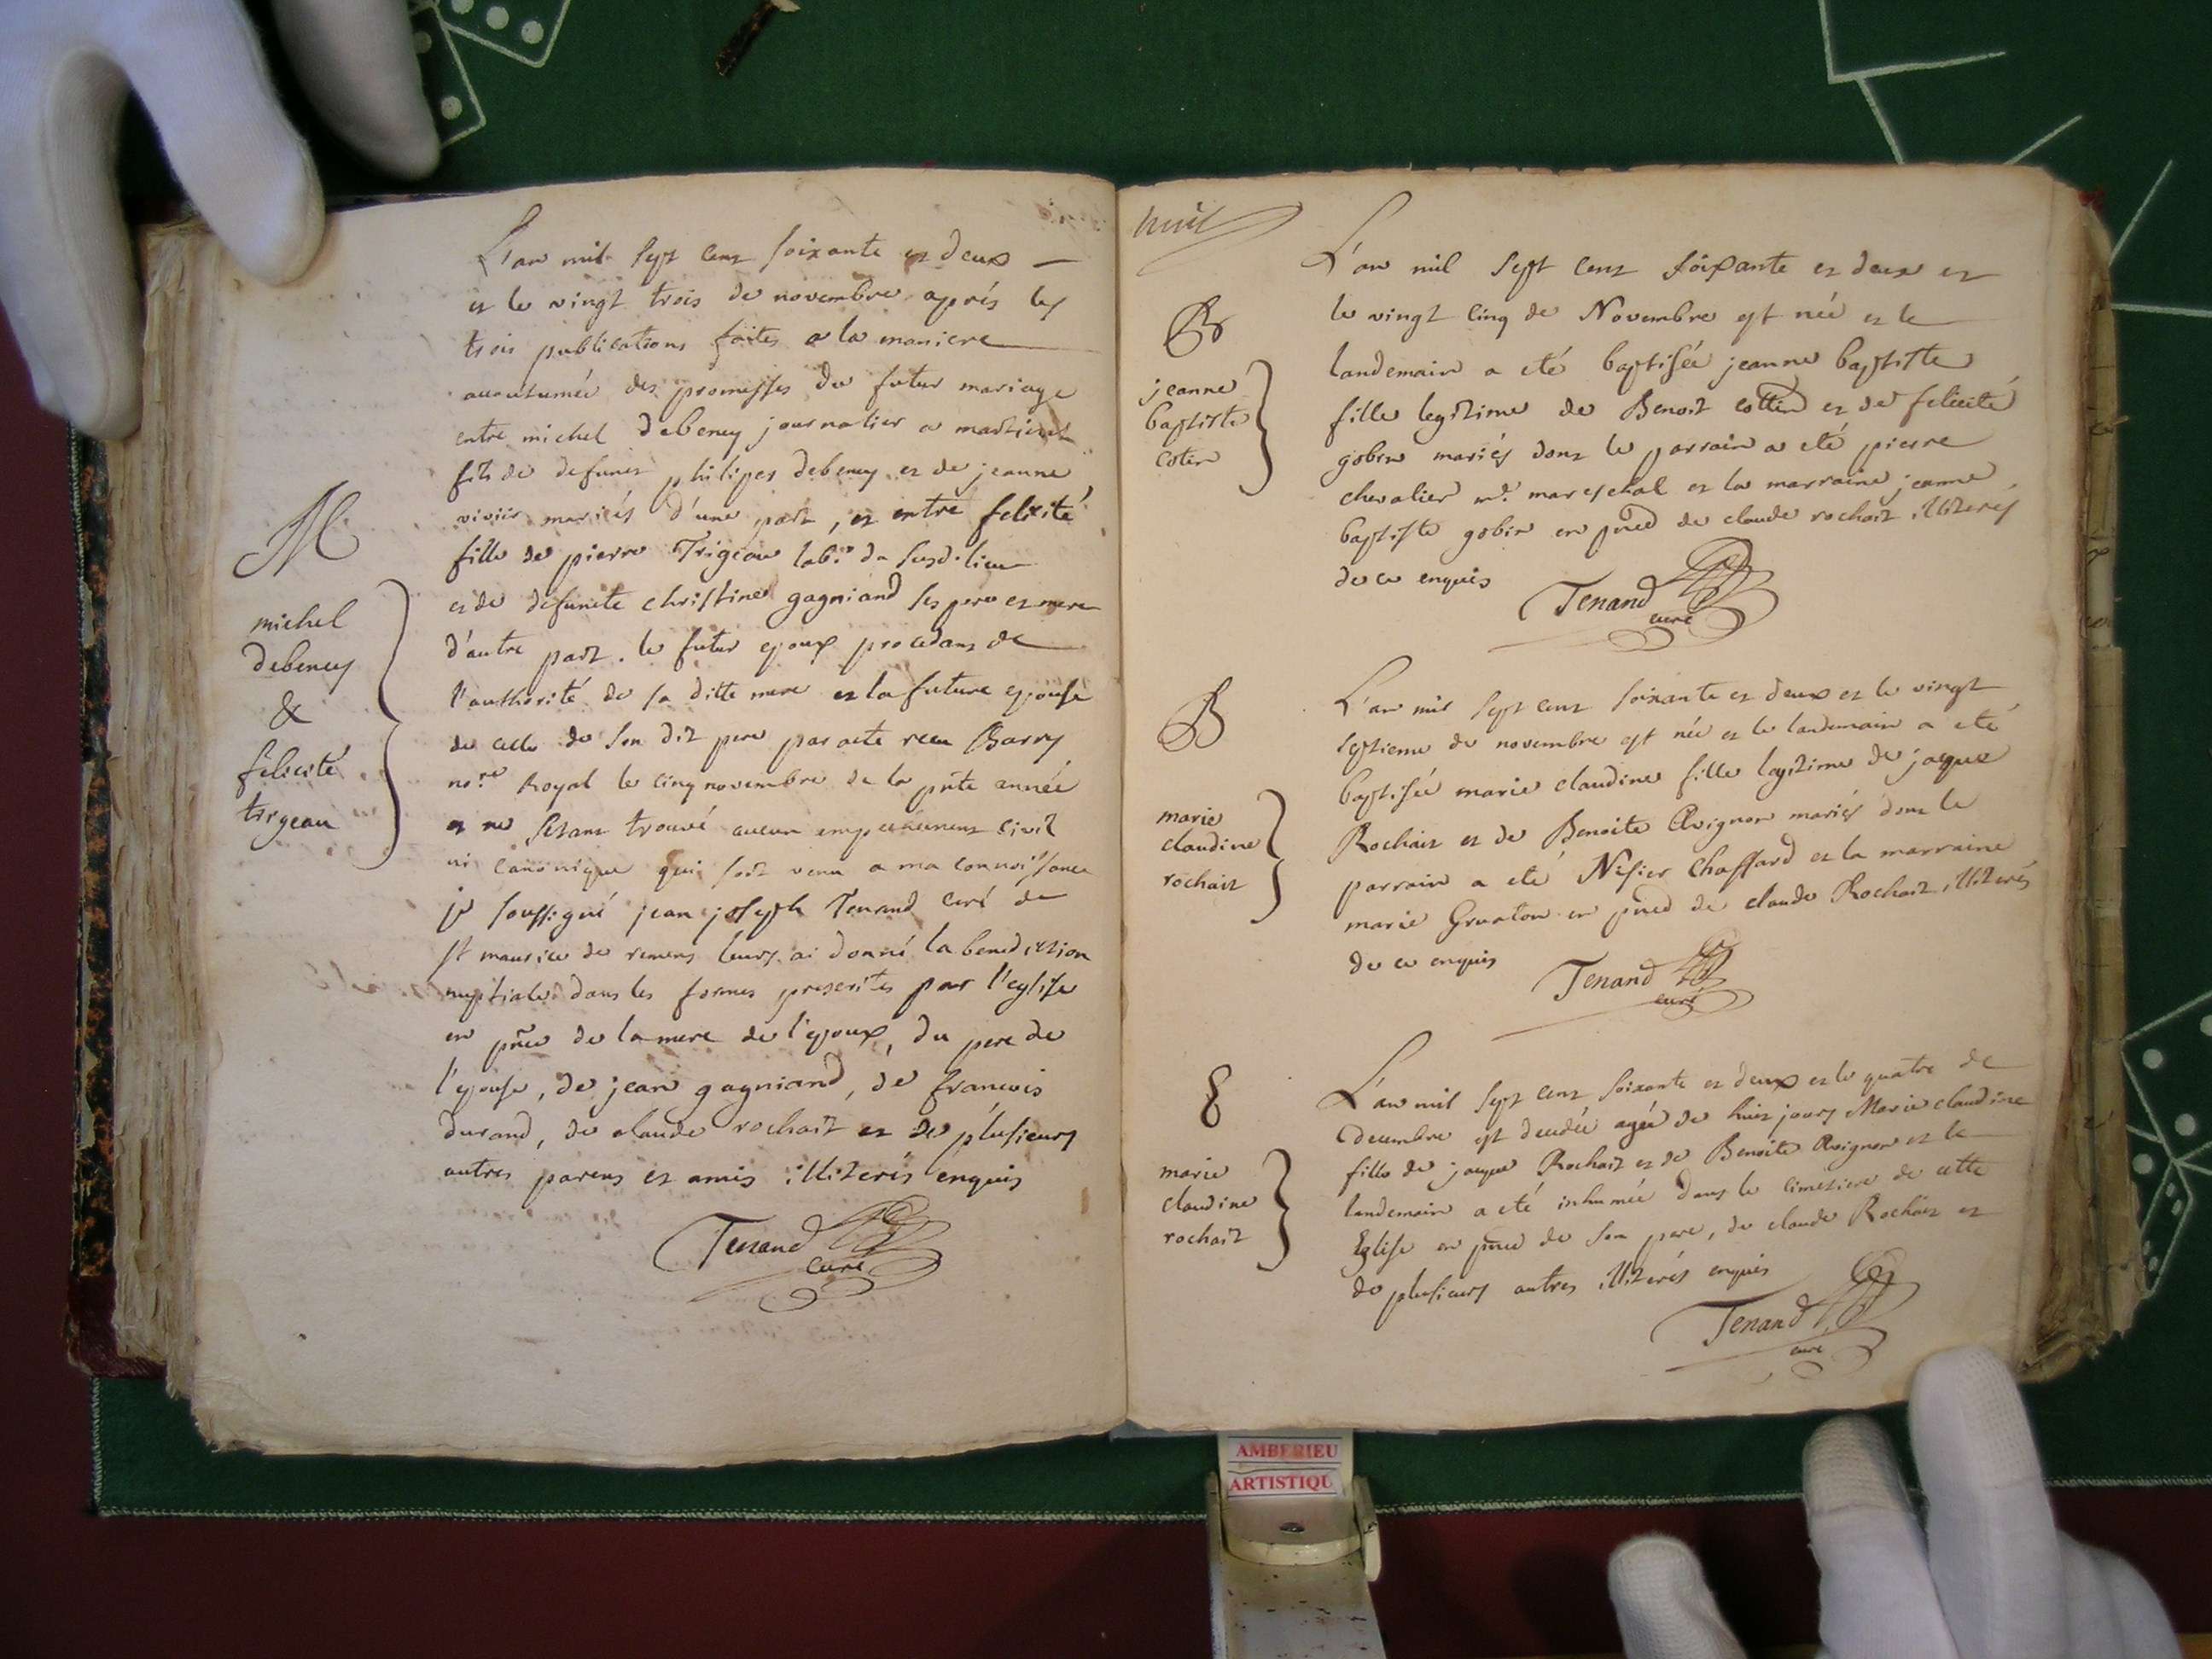 L'an mil sept cent soixante et deux
et le vingt trois de novembre après les
trois publications faites a la maniere
accoutumée des promesses du futur mariage
entre michel debeney journalier a martinat
fils de defunct philipes debeney et de jeanne
mariés d'une part, et entre felicité
fille de pierre Trigeau lab.r du susd. lieu
et de defuncte christine gagniand ses pere et mere
d'autre part. le futur epoux procedant de
l'authorité de sa ditte mere et la future epouse
de celle de son dit pere par acte recu Barry
no.re Royal le cinq novembre de la pnte année
et ne s'etant trouvé aucun empechement civil
ni canonique qui soit venu a ma connoissance
je soussigné jean joseph Tenand curé de
st maurice de remens leurs ai donné la benediction
nuptiale dans les formes prescrites par l'eglise
en pnce de la mere de l'epoux, du pere de
l'epouse, de jean gagniand, de francois
durand, de claude rochait et de plusieurs
autres parens et amis illiterés enquis
Tenand
curé
M
michel
debeney
&
felicité
trigeau
huit
L'an mil sept cent soixante et deux et
le vingt cinq de Novembre est née et le
landemain a eté baptisée jeanne baptiste
fille legitime de Benoit cottin et de felicité
gobin mariés dont le parrain a eté pierre
chevalier m.e mareschal et la marraine jeanne
baptiste gobin en pnce de claude rochait illiterés
de ce enquis
Tenand
curé
B
jeanne
baptiste
cotin
L'an mil sept cent soixante et deux et le vingt
septieme de novembre est née et le landemain a eté
baptisée marie claudine fille legitime de jaque
Rochait et de Benoite Avignon mariés dont le
parrain a eté Nisier Chaffard et la marraine
marie Gruaton en pnce de claude Rochait illiterés
de ce enquis
Tenand
curé
B
marie
claudine
rochait
L'an mil sept cent soixante et deux et le quatre de
decembre est decedée agée de huit jours Marie claudine
fille de jaque Rochait et de Benoite Avignon et le
landemain a eté inhumée dans le cimetiere de cette
Eglise en pnce de son pere, de claude Rochait et
de plusieurs autres illiterés enquis
Tenand
curé
marie
claudine
rochait
AMBERIEU
ARTISTIQU